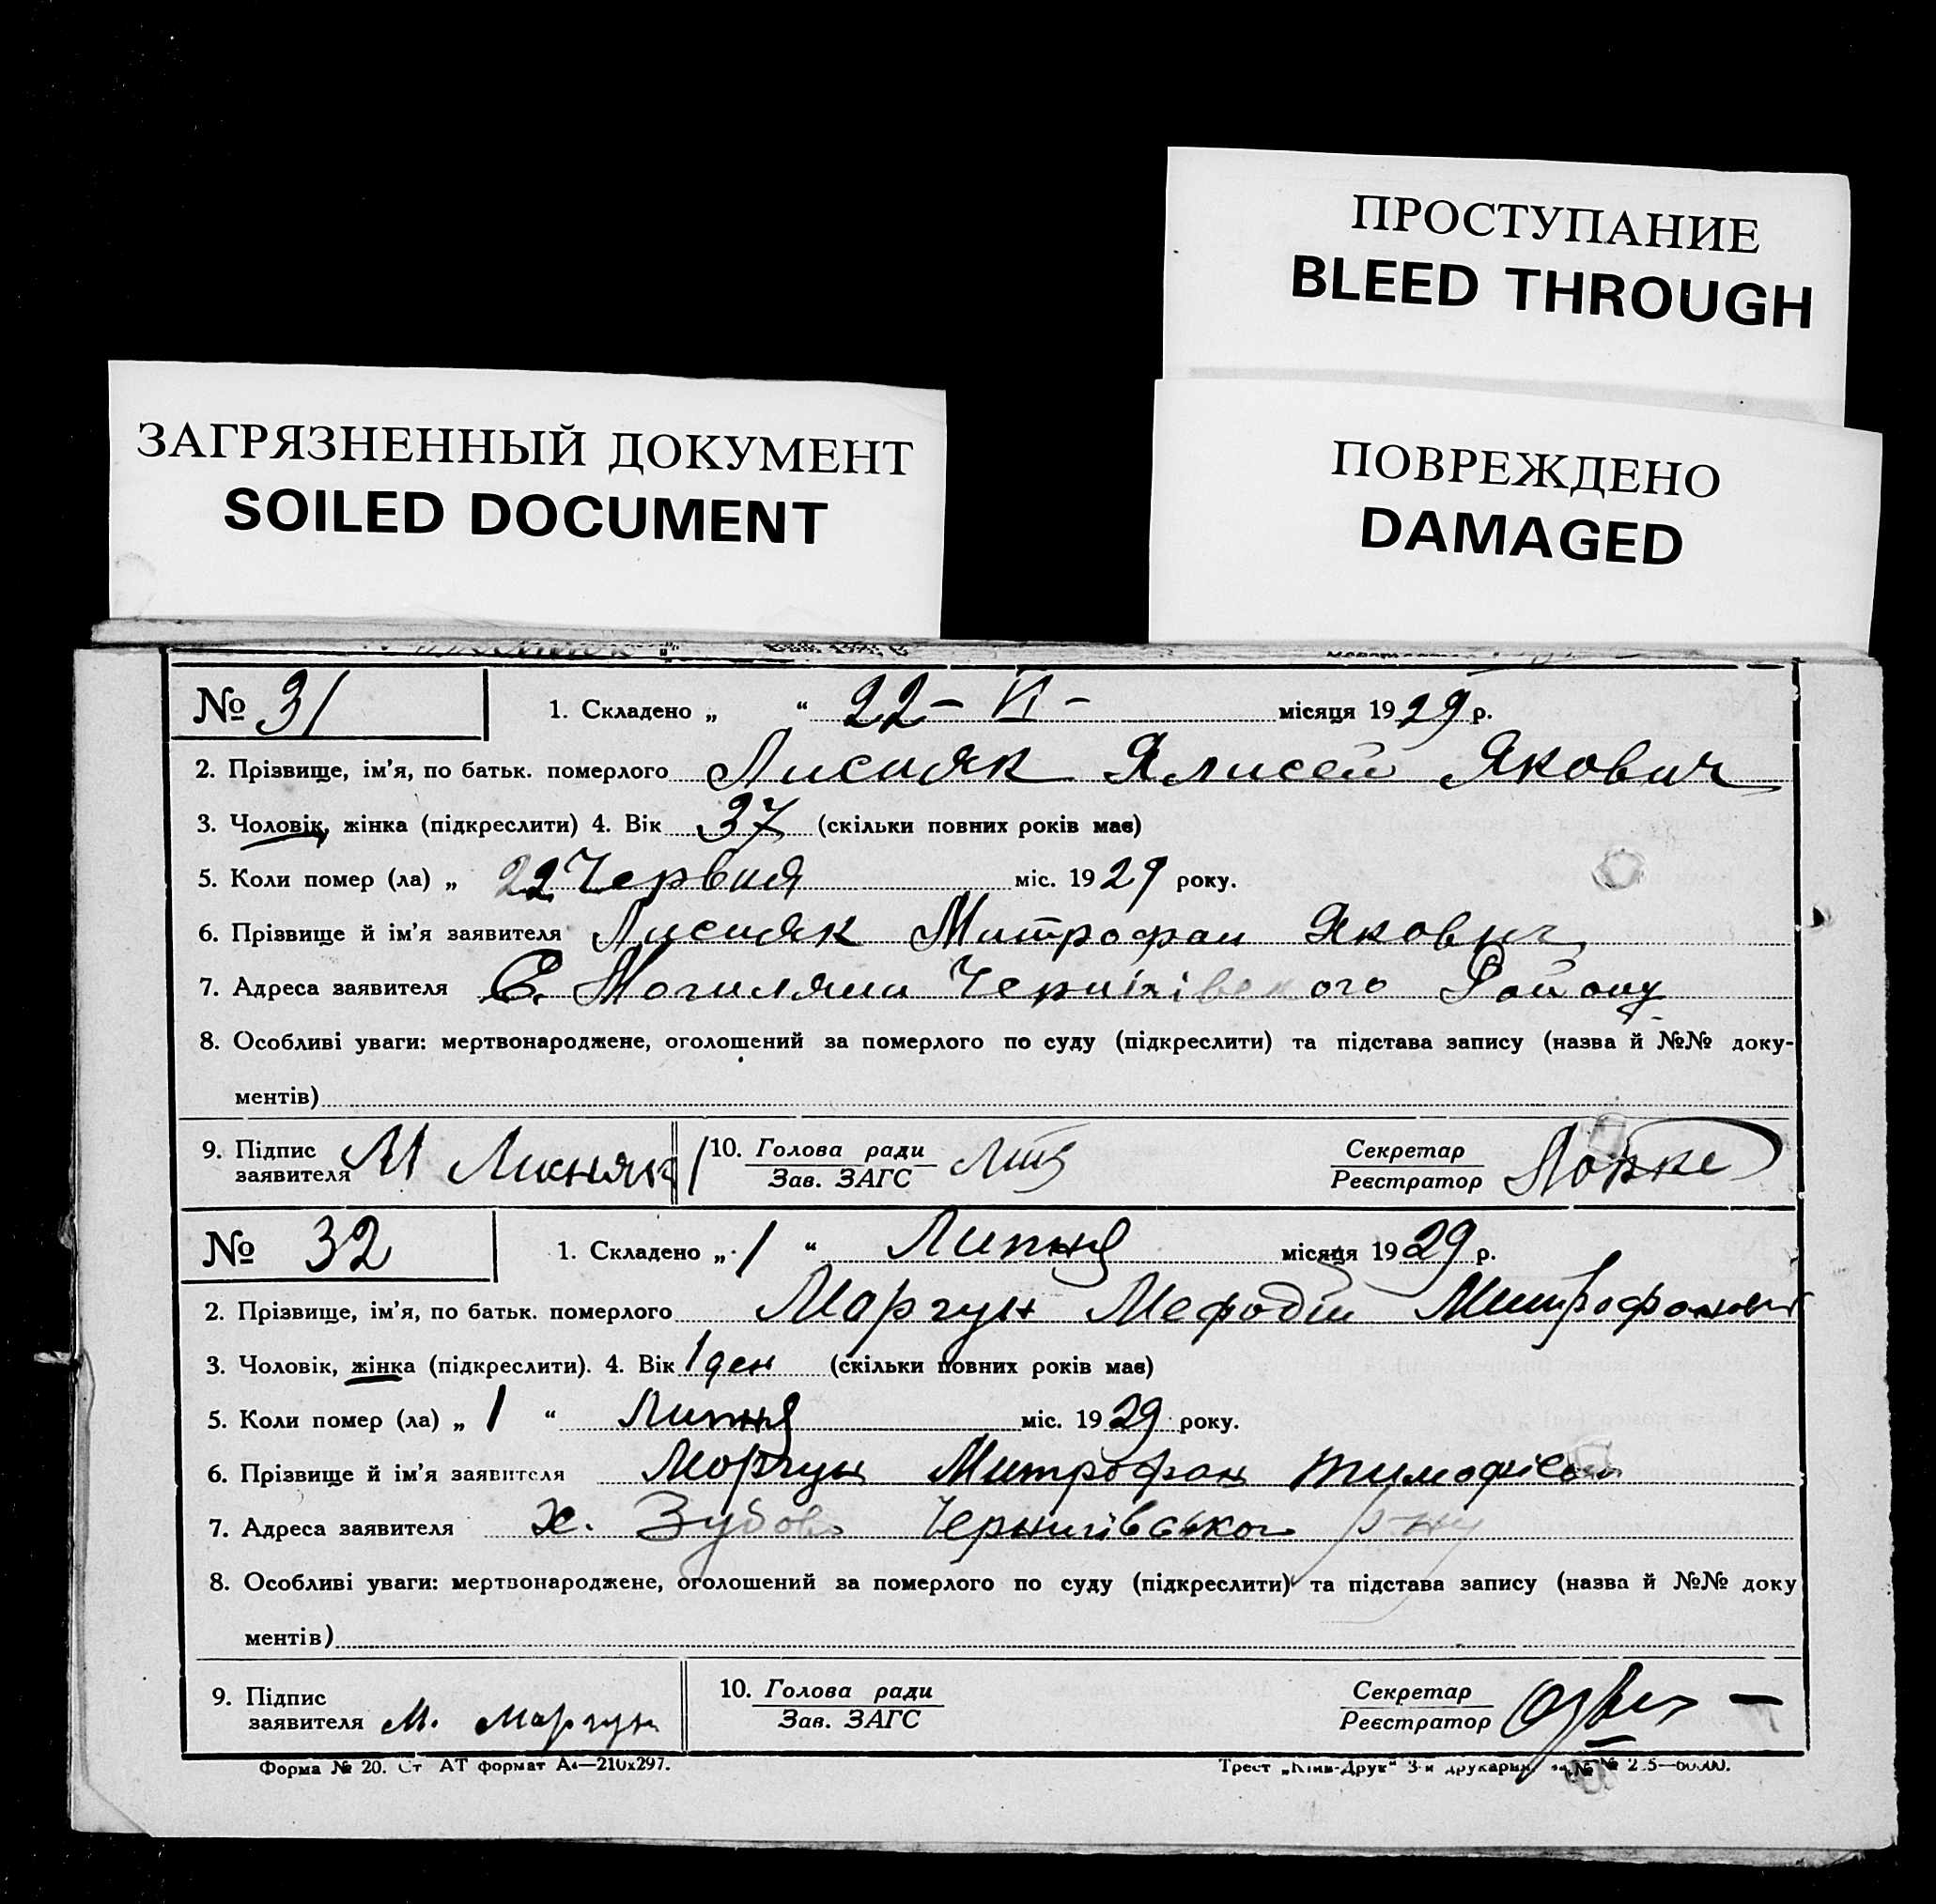 ПРОСТУПАНИЕ
BLEED THROUGH
ЗАГРЯЗНЕННЫЙ ДОКУМЕНТ
SOILED DOCUMENT
ПОВРЕЖДЕНО
DAMAGED
№ 31 1. Складено „ “ 22 – VI – місяця 1929 р.
2. Прізвище, ім'я, по батьк. померлого Лисняк Ялисей Якович
3. Чоловік, жінка (підкреслити) 4. Вік 37 (скільки повних років має)
5. Коли помер (ла) „ 22 Червня міс. 1929 року.
6. Прізвище й ім'я заявителя Лисняк Митрофан Якович
7. Адреса заявителя С. Могиляни Чернігівського Району
8. Особливі уваги: мертвонароджене, оголошений за померлого по суду (підкреслити) та підстава запису (назва й №№ доку-
ментів)
9. Підпис заявителя М Лисняк 10. Голова ради Зав. ЗАГС Секретар Реєстратор
№ 32 1. Складено „ 1 “ Липня місяця 1929 р.
2. Прізвище, ім'я, по батьк. померлого Моргун Мефодій Митрофанович
3. Чоловік, жінка (підкреслити). 4. Вік 1 ден (скільки повних років має)
5. Коли помер (ла) „ 1 “ Липня міс. 1929 року.
6. Прізвище й ім'я заявителя Моргун Митрофан Тимофієв
7. Адреса заявителя х. Чернигівського р-ну
8. Особливі уваги: мертвонароджене, оголошений за померлого по суду (підкреслити) та підстава запису (назва й №№ доку
ментів)
9. Підпис заявителя М. Моргун 10. Голова ради Зав. ЗАГС Секретар Реєстратор
Форма № 20. Ст АТ формат А4—210х297. Трест „Київ-Друк“ 3-я друкарня